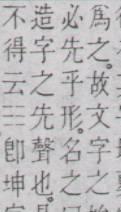 爲之。故文字之始
必先乎形。名之之
造字之先聲也。
不得云☷卽坤